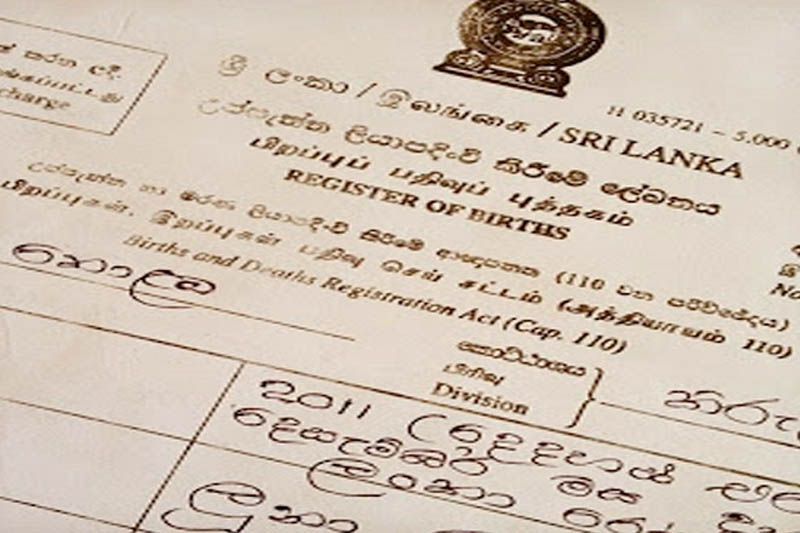 කරන ලදි.
charge
H 035721 – 5,000
ශ්‍රී ලංකා / இலங்கை / SRI LANKA
උප්පැන්න ලියාපදිංචි කිරීමේ ලේඛනය
பிறப்புப் பதிவுப் புத்தகம்
REGISTER OF BIRTHS
උප්පැන්න හා මරණ ලියාපදිංචි කිරීමේ ආඥාපනත (110 වන පරිච්ඡේදය)
பிறப்புகள், இறப்புகள் பதிவு செய் சட்டம் (அத்தியாயம் 110)
Births and Deaths Registration Act (Cap. 110)
No
කොළඹ
කොට්ඨාශය
பிரிவு
Division
2011
දෙසැම්බර් මස
ලංකා